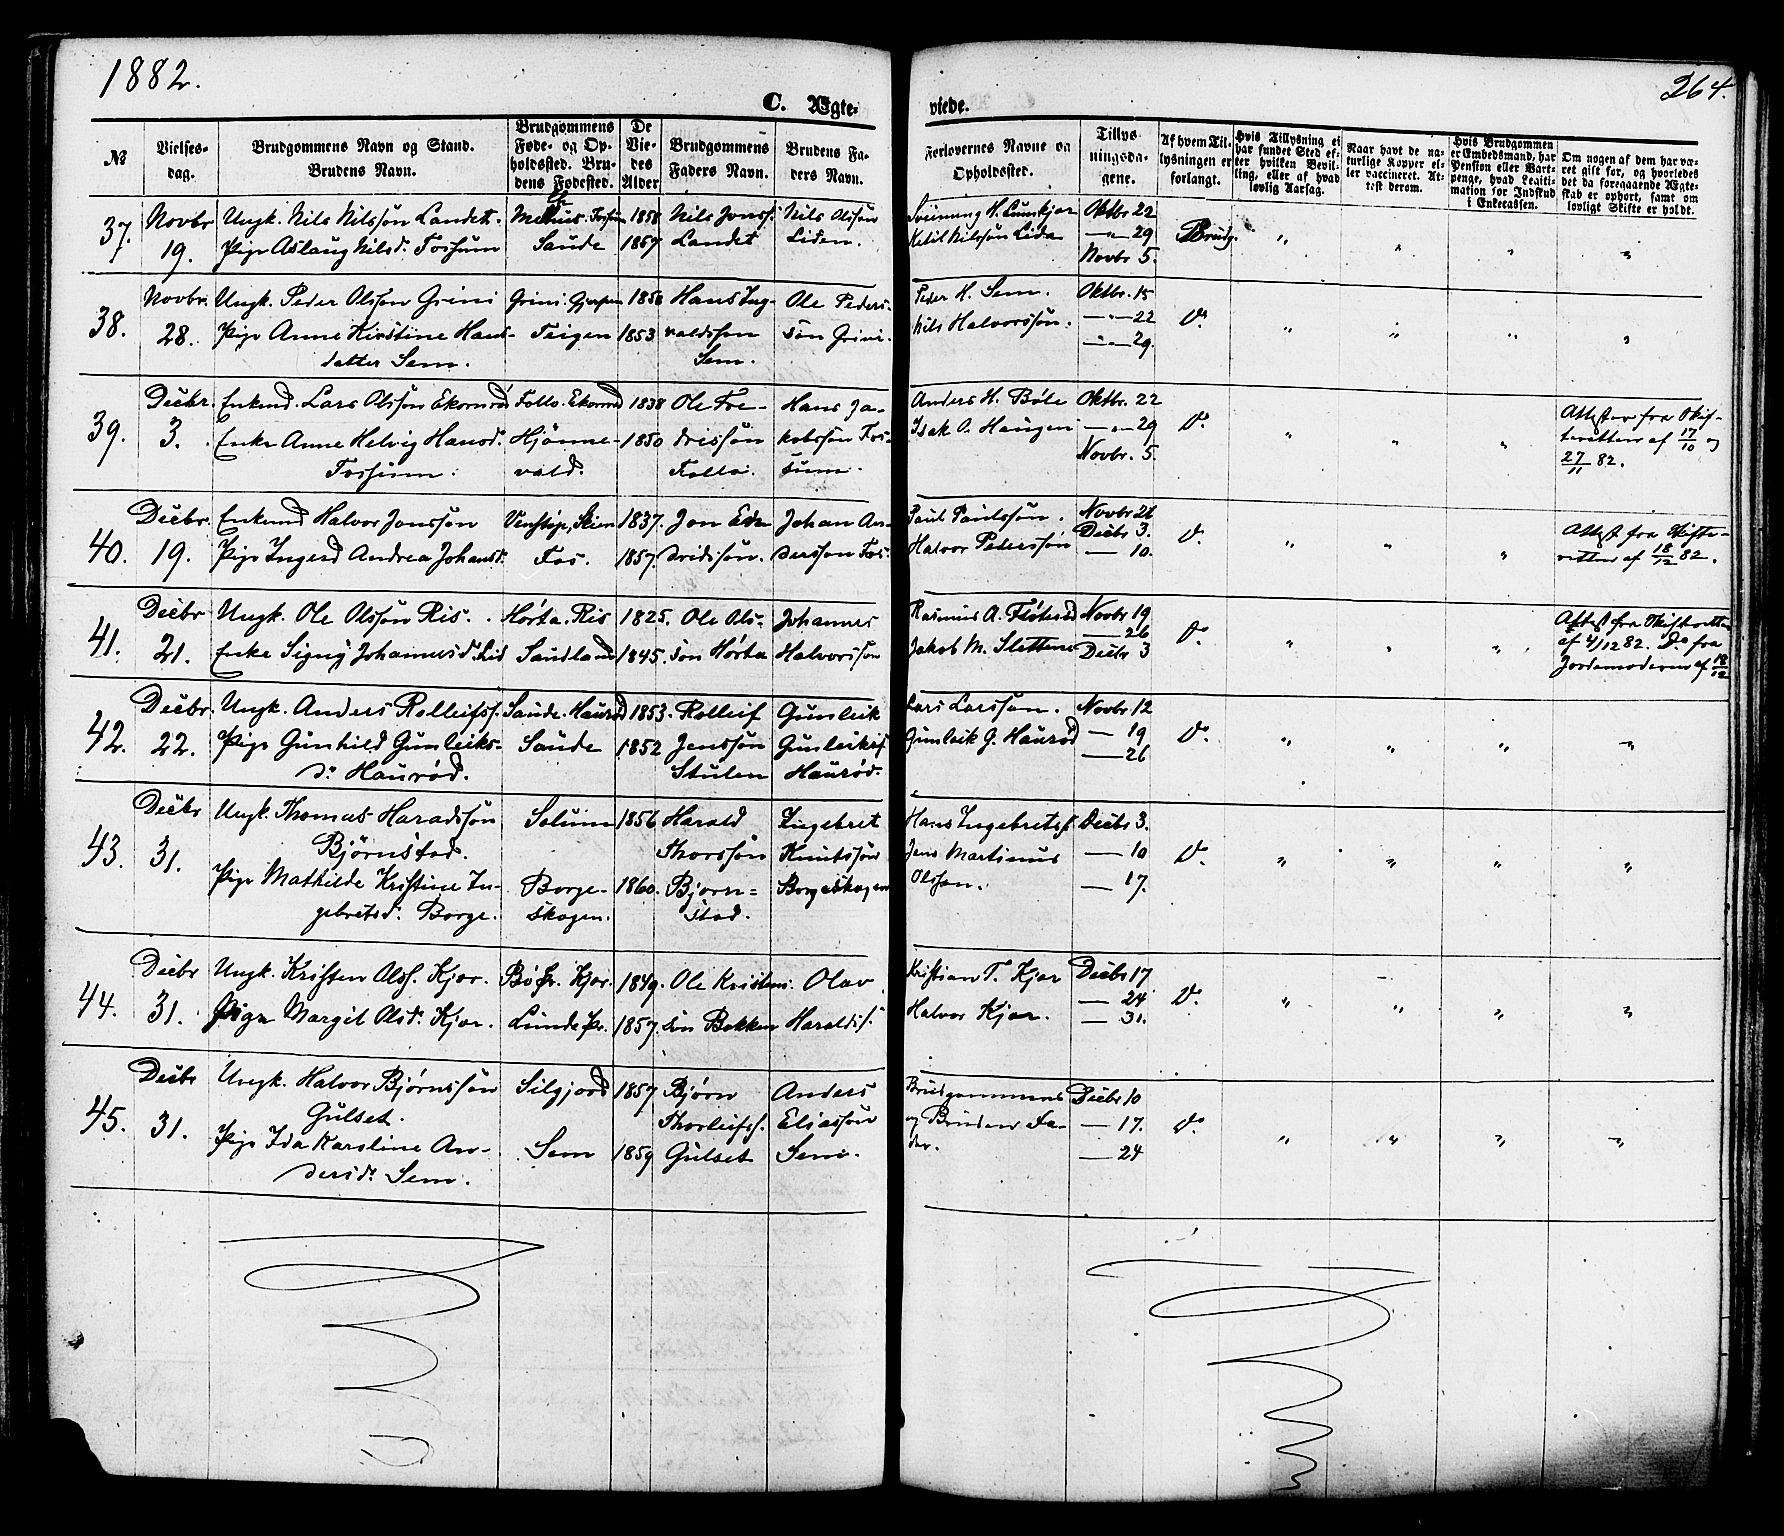 1882.
264.
C. Ægte-
viede.
№
Vielses-
dag.
Brudgommens Navn og Stand.
Brudens Navn.
Brudgommens
Føde- og Op-
holdssted. Bru-
dens Fødested.
De
Vie-
des
Alder
Brudgommens
Faders Navn.
Brudens Fa-
ders Navn.
Forlovernes Navne og
Opholdssted.
Tillys
ningsda-
gene.
Af hvem Til-
lysningen er
forlangt.
Hvis Tillysning ei
har fundet Sted ef-
ter hvilken Bevil-
ling, eller af hvad
lovlig Aarsag.
Naar havt de na-
turlige Kopper el-
ler vaccineret. At-
test derom.
Hvis Brudgommen
er Embedsmand, har
Pension eller Vart-
penge, hvad Legiti-
mation for Indskud
i Enkecassen.
Om nogen af dem har væ-
ret gift før, og hvorledes
det da foregaaende Ægte-
skab er ophørt, samt om
lovligt Skifte er holdt.
37.
Novbr
19.
Ungk. Nils Nilssøn Landet.
Pige Aslaug Nilsd. Fossum
Saude
1858
1857
Nils Jonss.
Landet
Nils Olssøn
Liden.
Sveinung H.
Ketil Nilssøn Lida
Oktbr 22
—"—29
Novbr 5.
Brudg.
38.
Novbr.
28.
Ungk. Peder Olssøn Grini
Pige Anne Kirstine Hans-
datter Sem.
Grini. Gjerpen
Teigen
1850
1853
Hans Ing-
valdssøn
Sem.
Ole Peders-
søn Grini.
Peder H. Sem.
Nils Halvorssøn.
Oktbr. 15
—"—22
—"—29.
Do.
39.
Decbr.
3.
Enkmd. Lars Olssøn Ekornrød
Enke Anne Helvig Hansd.
Fossum.
Follo. Ekornrød
Hjønne-
vald.
1838
1850
Ole Fre-
drissøn
Follo.
Hans Ja-
kobssøn Fos-
sum.
Anders H. Bøle
Isak O. Haugen
Oktbr. 22
—"—29
Novbr. 5.
Do.
Attester fra Skif-
teretten af 17/10 og
27/11 82.
40.
Decbr.
19.
Enkemd Halvor Jonssøn
Pige Ingerd Andrea Johansd.
Venstøp, Skien
Fos.
1837.
1857.
Jon
Johan An-
derssøn Fos.
Paul Paulssøn.
Halvor Pederssøn
Novbr 26
Decbr 3.
— 10.
Do.
Attest fra Skifte-
retten af 18/12 82.
41.
Decbr
21.
Ungk. Ole Olssøn Ris.
Enke Signy Johannesd. Lid
Hørta. Ris
Sandland
1825.
1845.
Ole Ols-
søn Hørta
Johannes
Halvorssøn
Rasmus A. Fløterød
Jakob M. Slettene
Novbr 19
— 26
Decbr 3
Do.
Attest fra Skifteretten
af 4/12 82. Do. fra
Jordemoderen af 18/12
42.
Decbr.
22.
Ungk. Anders Rolleifss.
Pige Gunhild Gunleiks-
dr Haurød.
Saude. Haurød
Saude
1853.
1852
Rolleif
Jenssøn
Stulen
Gunleik
Gunleikss
Haurød.
Lars Larssøn.
Gunleik G. Haurød
Novbr 12
— 19
— 26
Do.
43.
Decbr
31.
Ungk. Thomas Haradssøn
Bjørnstad.
Pige Mathilde Kristine In-
gebretsd. Borge.
Solum
Borge-
skogen.
1856
1860.
Harald
Thorssøn
Bjørn=
stad.
Ingebret
Knutssøn
Borgeskogen
Hans Ingebretss.
Jens Martinus
Olssøn.
Decbr 3.
— 10
— 17.
Do.
44.
Decbr
31.
Ungk. Kristen Olss. Kjær.
Pige Margit Olsd. Kjær.
Bø Pr. Kjær.
Lunde Pr.
1849.
1857.
Ole Kristens-
søn Bakken
Olav
Haraldss.
Kristian T. Kjær
Halvor Kjær.
Decbr 17
— 24
— 31.
Do.
45.
Decbr
31.
Ungk. Halvor Bjørnssøn
Gulset.
Pige Ida Karoline An-
dersdr Sem.
Silgjord
Sem
1857
1859
Bjørn
Thorleifss.
Gulset
Anders
Eliassøn
Sem.
Brudgommens
og Brudens Fa-
der.
Decbr 10
— 17.
— 24
Do.